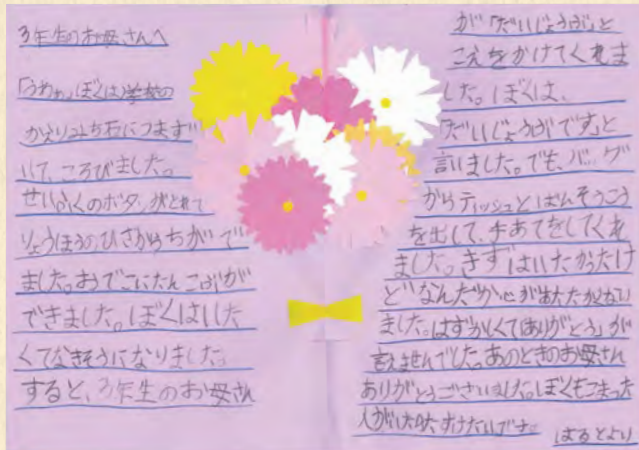 3年生のお母さんへ
「うわぁ」ぼくは学校の
かえりみち石につまず
いて、ころびました。
せいふくのボタンがとれて
りょうほうのひざからちがで
ました。おでこにたんこぶが
できました。ぼくはいた
くてなきそうになりました。
すると、3年生のお母さん
が「だいじょうぶ」と
こえをかけてくれま
した。ぼくは、
「だいじょうぶです」と
言いました。でも、バッグ
からティッシュとばんそうこう
を出して、手あてをしてくれ
ました。きずはいたかったけ
どなんだか心があたたかくなり
ました。はずかしくて「ありがとう」が
言えませんでした。あのときのお母さん
ありがとうございました。ぼくもこまった
人がいたらたすけたいです。
はるとより